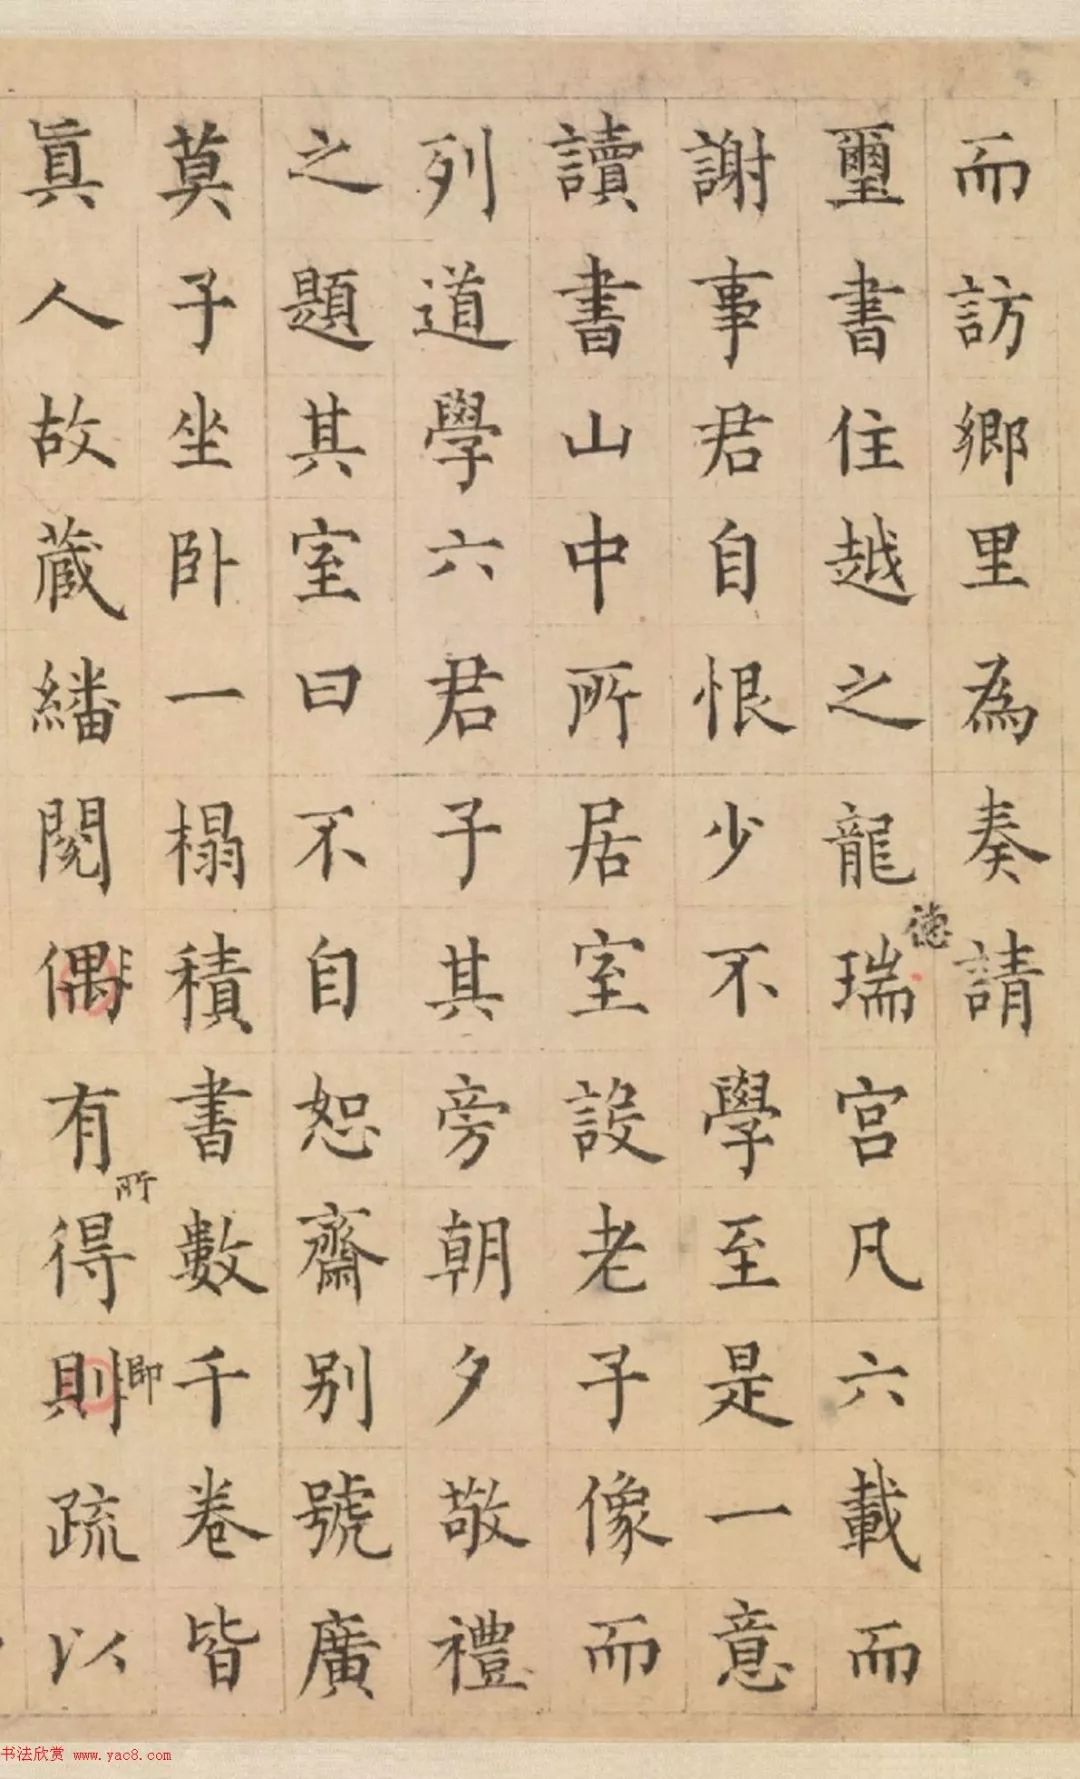 而訪鄉里為奏請
璽書住越之龍瑞宮凡六載而
德
謝事君自恨少不學至是一意
讀書山中所居室設老子像而
列道學六君子其旁朝夕敬禮
之題其室曰不自恕齋別號廣
莫子坐臥一榻積書數千卷皆
真人故蔵繙閱偶有得則疏以
所
即
书法欣赏 www.yac8.com